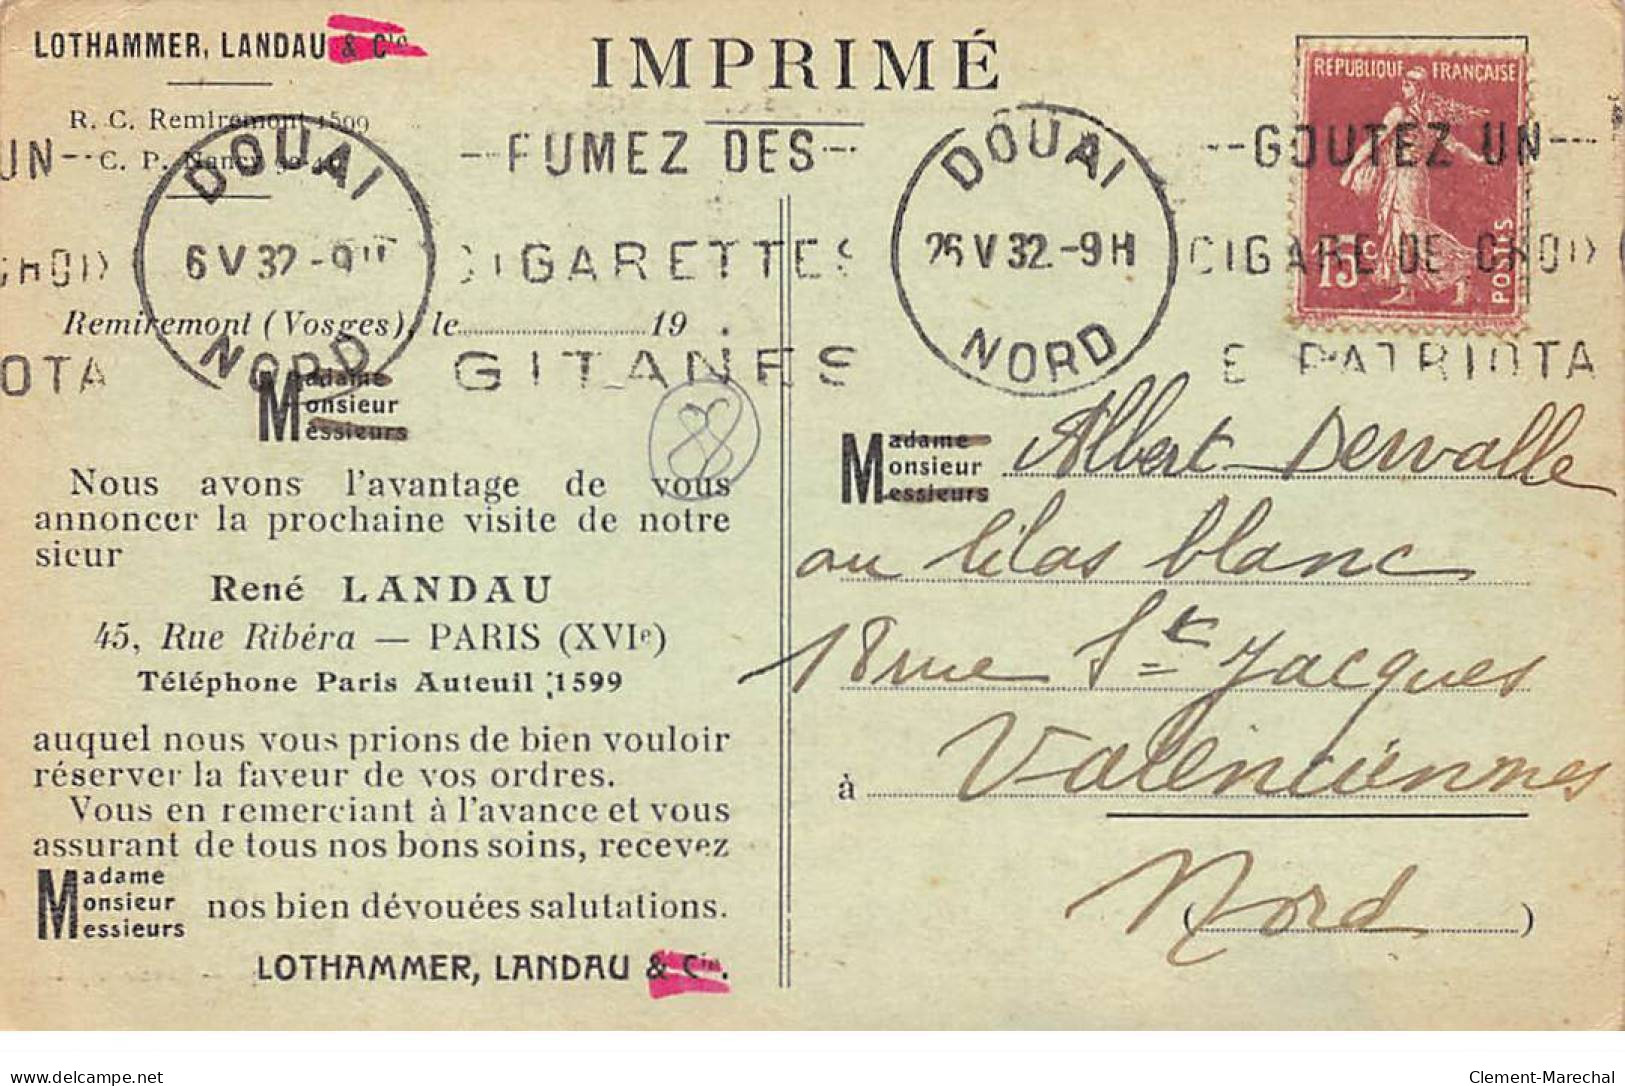 LOTHAMMER, LANDAU & Cie
IMPRIMÉ
R. C. Remiremont 1599
C. P. Nancy
RÉPUBLIQUE FRANÇAISE
15c
POSTES
UN
DOUAI
6 V 32 - 9 H
NORD
CHOIX
OTA
FUMEZ DES
CIGARETTES
GITANES
DOUAI
26 V 32 - 9 H
NORD
GOUTEZ UN
CIGARE DE CHOIX
E PATRIOTA
Remiremont (Vosges), le 19 .
Madame
Monsieur
Messieurs
88
Nous avons l'avantage de vous
annoncer la prochaine visite de notre
sieur
René LANDAU
45, Rue Ribéra — PARIS (XVIe)
Téléphone Paris Auteuil 1599
auquel nous vous prions de bien vouloir
réserver la faveur de vos ordres.
Vous en remerciant à l'avance et vous
assurant de tous nos bons soins, recevez
Madame
Monsieur
Messieurs
nos bien dévouées salutations.
LOTHAMMER, LANDAU & Cie.
Madame
Monsieur
Messieurs
Albert Dervalle
au lilas blanc
18 rue St Jacques
à Valenciennes
(Nord)
delcampe.net
Clement-Marechal